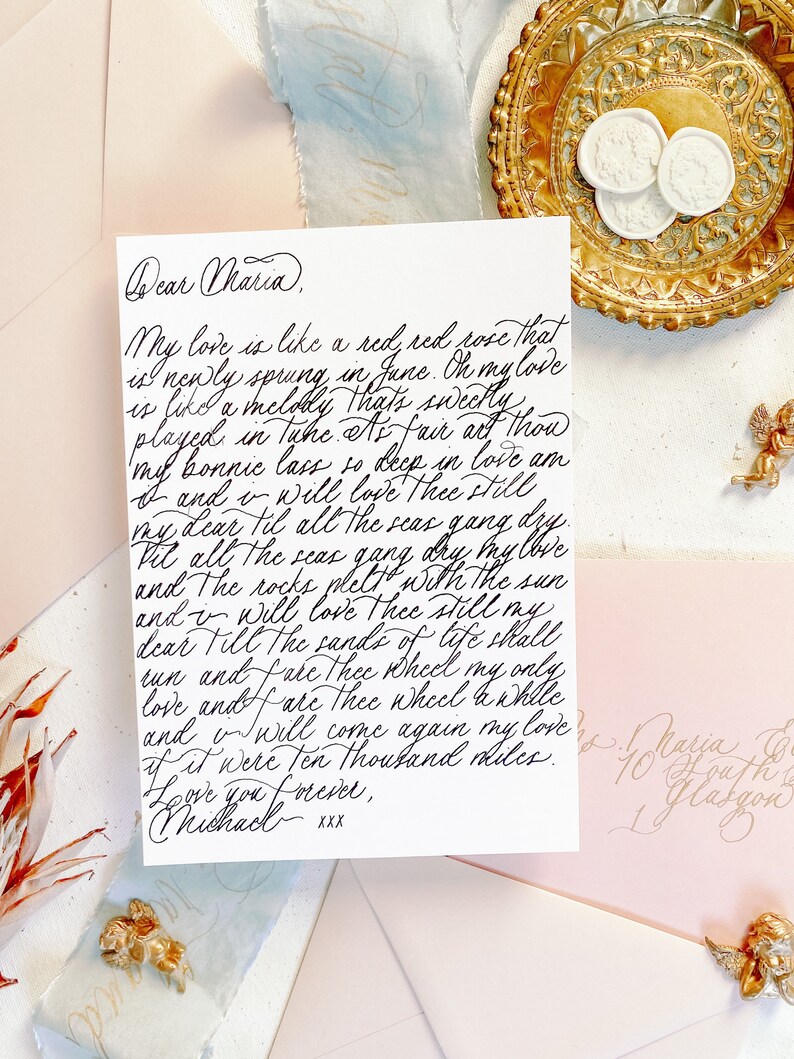 Dear Maria,
My love is like a red, red rose that
is newly sprung in June. Oh my love
is like a melody thats sweetly
played in tune. As fair art thou
my bonnie lass so deep in love am
i and i will love thee still
my dear til all the seas gang dry.
Til all the seas gang dry my love
and the rocks melt with the sun
and i will love thee still my
dear till the sands of life shall
run and fare thee wheel my only
love and fare thee wheel a while
and i will come again my love
if it were ten thousand miles.
Love you forever,
Michael xxx
Ms. Maria
10 South
Glasgow